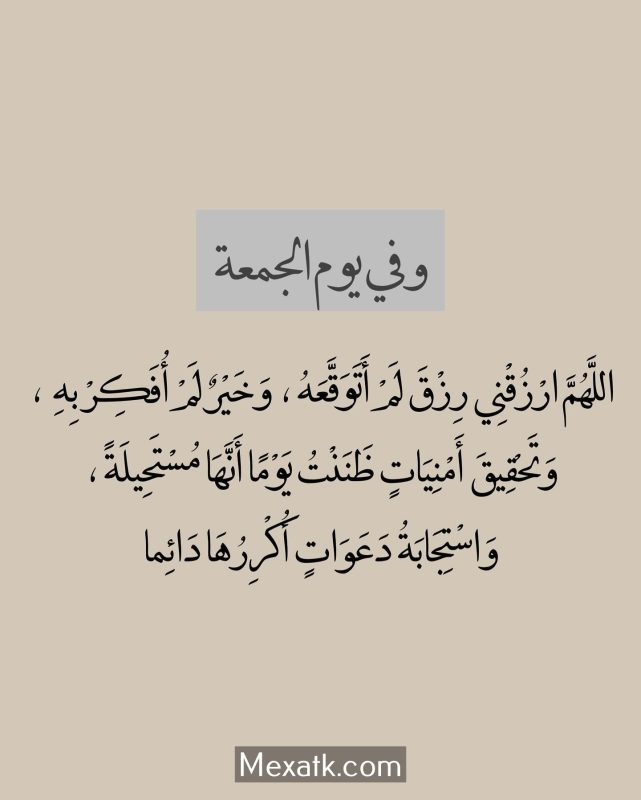 وفي يوم الجمعة
اللَّهُمَّ ارْزُقْنِي رِزْقَ لَمْ أَتَوَقَّعَهُ ، وَخَيْرٌ لَمْ أُفَكِرْ بِهِ ،
وَتَحْقِيقَ أَمْنِيَاتٍ ظَنَنْتُ يَوْمًا أَنَّهَا مُسْتَحِيلَةً ،
وَاسْتِجَابَةُ دَعَوَاتٍ أُكْرِرُهَا دَائِما
Mexatk.com